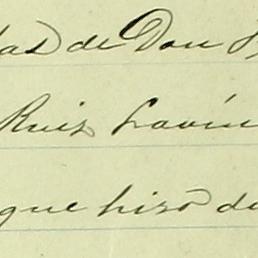 das de Don
Ruiz Lavín
que hizo de